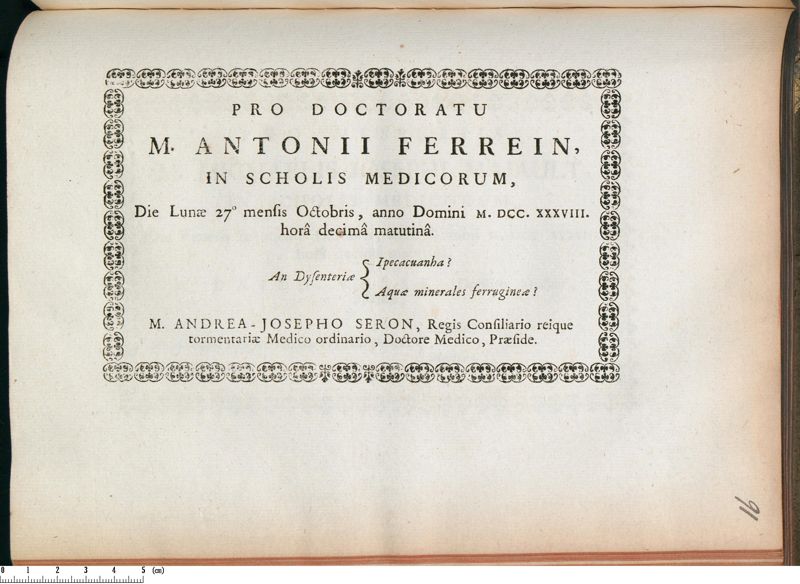 PRO DOCTORATU
M. ANTONII FERREIN,
IN SCHOLIS MEDICORUM,
Die Lunæ 27° mensis Octobris, anno Domini M. DCC. XXXVIII.
horâ decimâ matutinâ.
An Dysenteriæ { Ipecacuanha?
Aquæ minerales ferrugineæ?
M. ANDREA-JOSEPHO SERON, Regis Consiliario reique
tormentariæ Medico ordinario, Doctore Medico, Præside.
91
0 1 2 3 4 5 (cm)